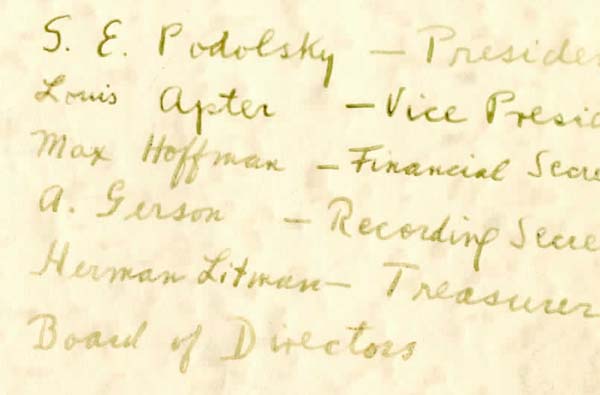 S. E. Podolsky — Preside
Louis Apter — Vice Presid
Max Hoffman — Financial Secre
A. Gerson — Recording Secre
Herman Litman — Treasurer
Board of Directors